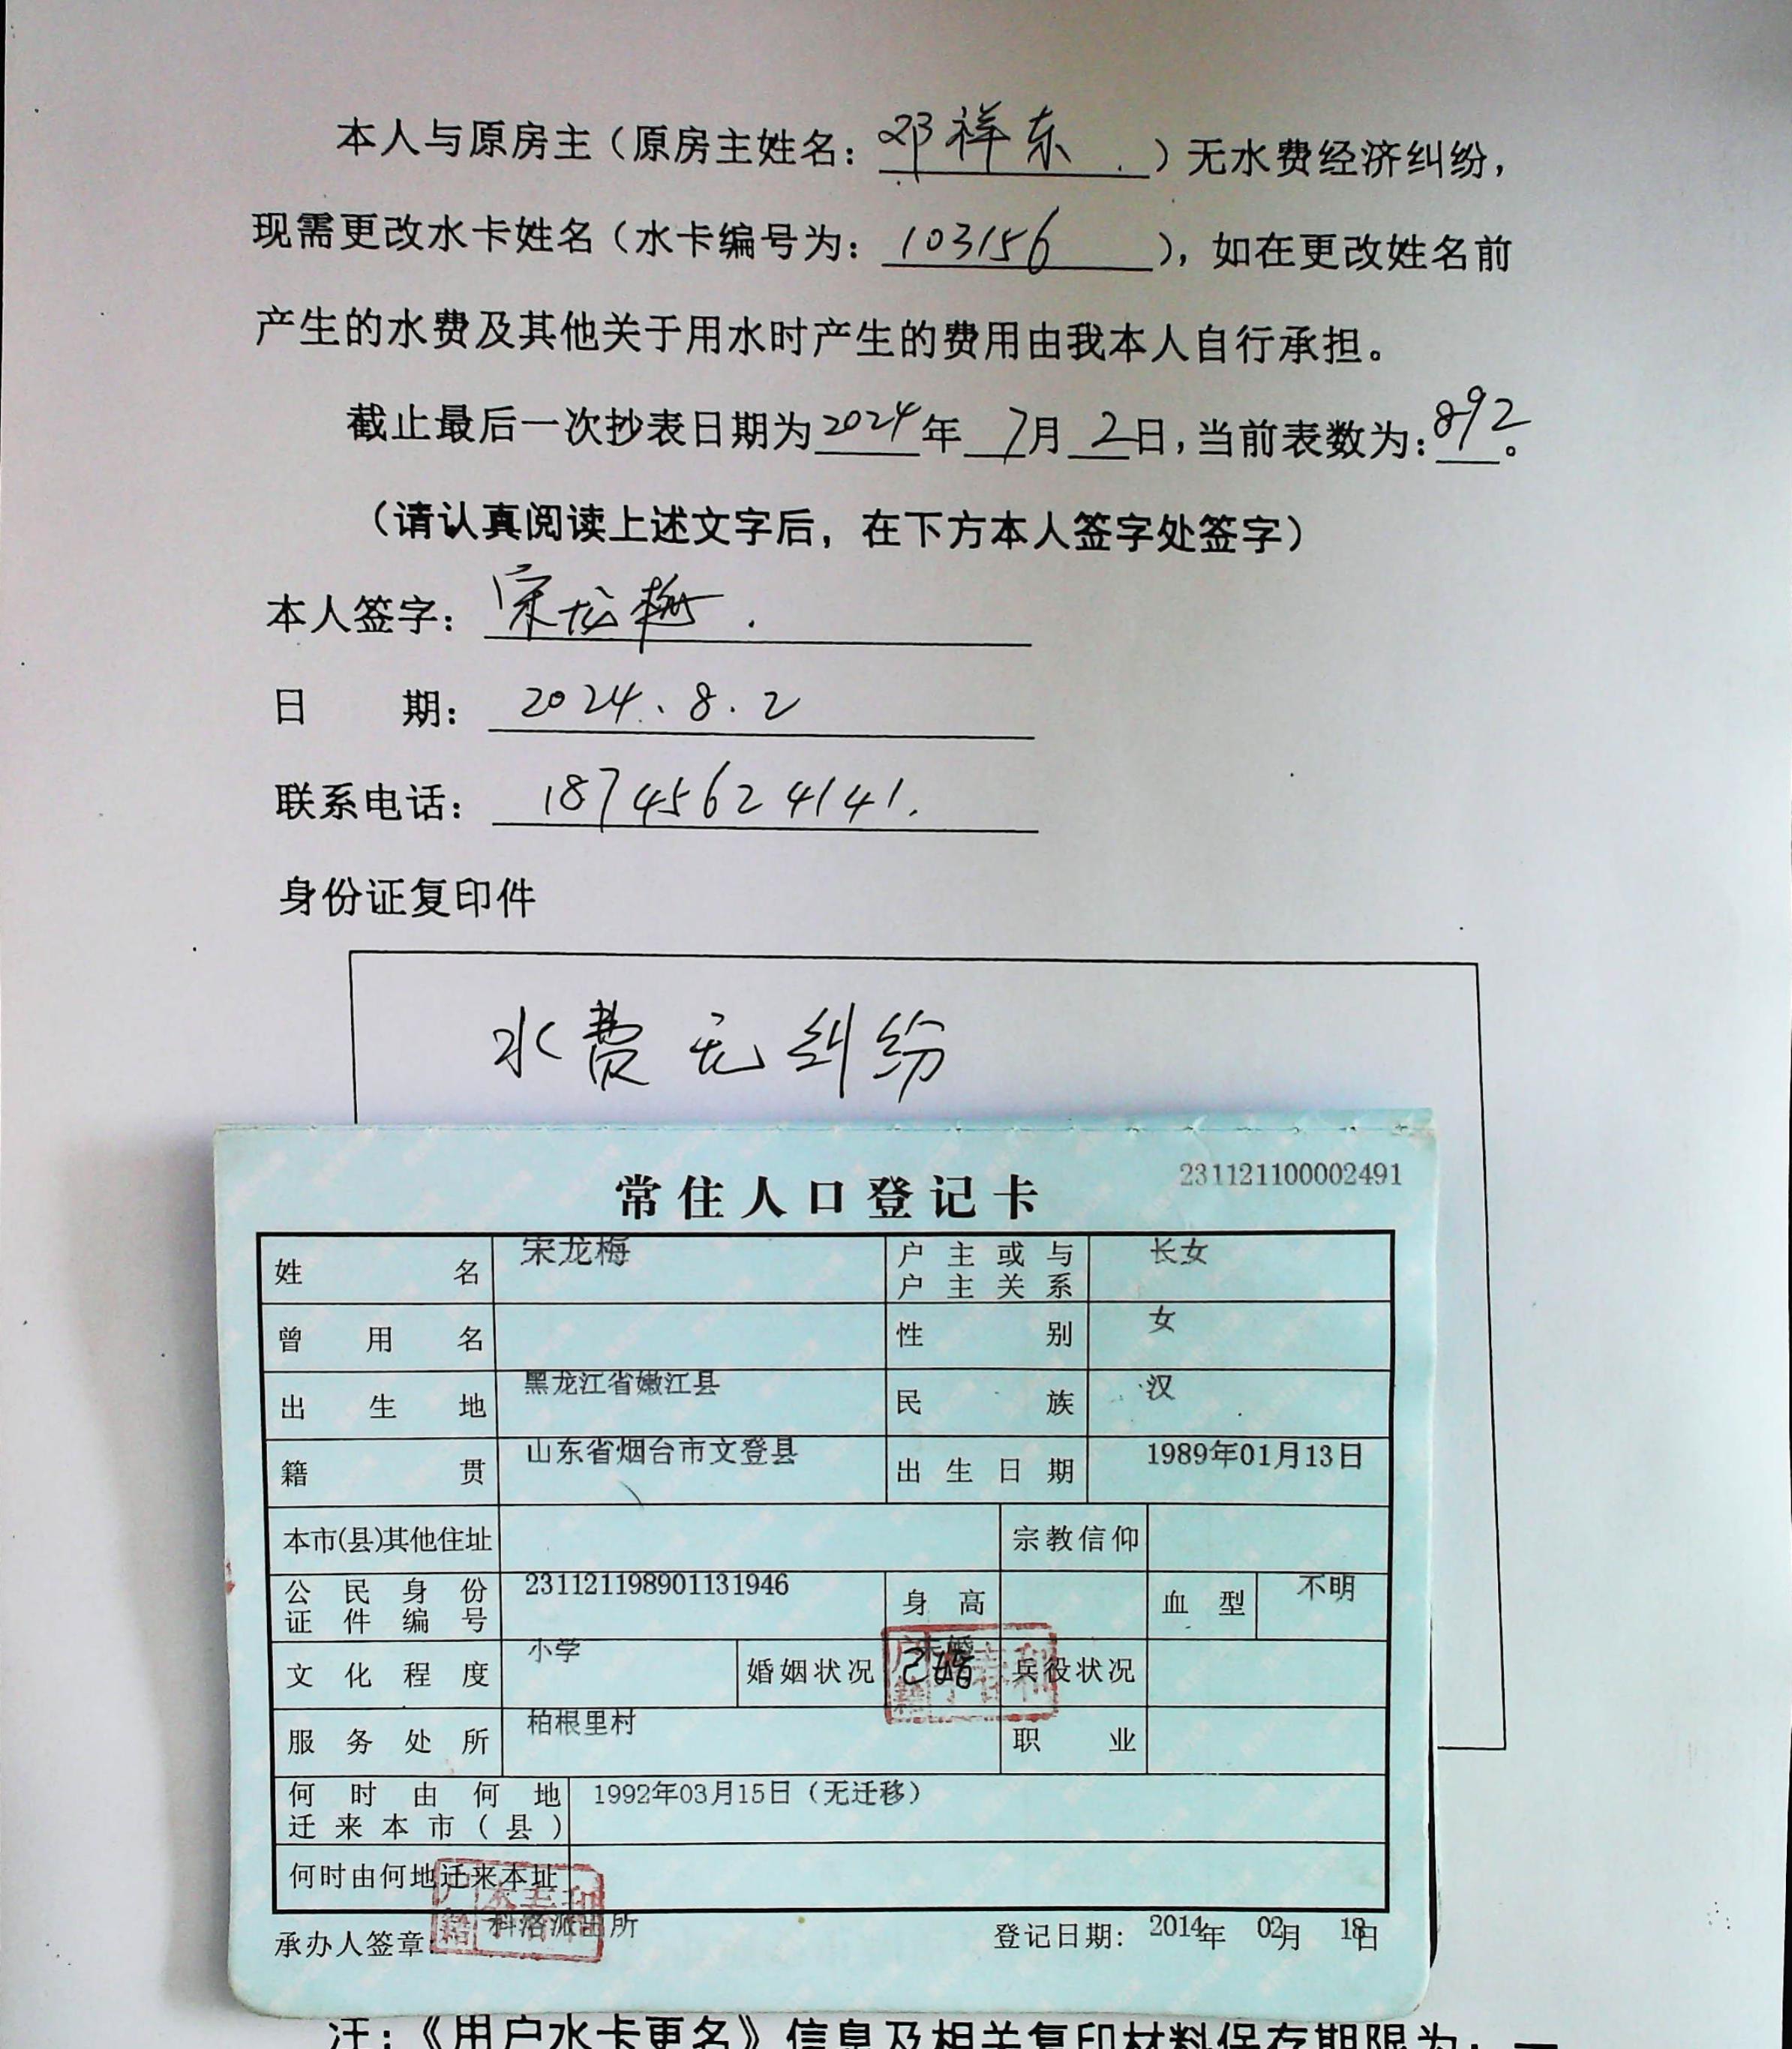 本人与原房主（原房主姓名：邓祥东）无水费经济纠纷，
现需更改水卡姓名（水卡编号为：103156），如在更改姓名前
产生的水费及其他关于用水时产生的费用由我本人自行承担。
截止最后一次抄表日期为2024年7月2日，当前表数为：892。
（请认真阅读上述文字后，在下方本人签字处签字）
本人签字：宋龙梅
日期：2024.8.2
联系电话：18745624141.
身份证复印件
水费无纠纷
231121100002491
常住人口登记卡
姓名 宋龙梅 户主或与户主关系 长女
曾用名 性别 女
出生地 黑龙江省嫩江县 民族 汉
籍贯 山东省烟台市文登县 出生日期 1989年01月13日
本市(县)其他住址 宗教信仰
公民身份证件编号 231121198901131946 身高 血型 不明
文化程度 小学 婚姻状况 已婚 兵役状况
服务处所 柏根里村 职业
何时由何地迁来本市(县) 1992年03月15日（无迁移）
何时由何地迁来本址
承办人签章： 科洛派出所 登记日期：2014年02月18日
注：《用户水卡更名》信息及相关复印材料保存期限为：一